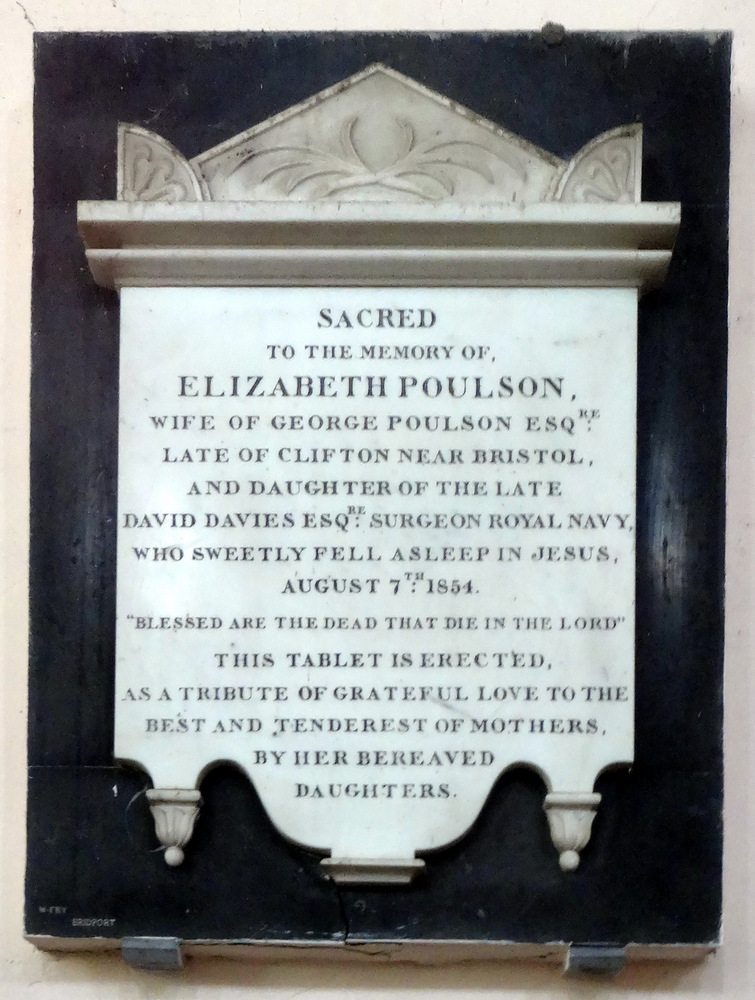 SACRED
TO THE MEMORY OF,
ELIZABETH POULSON,
WIFE OF GEORGE POULSON ESQ.RE
LATE OF CLIFTON NEAR BRISTOL,
AND DAUGHTER OF THE LATE
DAVID DAVIES ESQ.RE SURGEON ROYAL NAVY,
WHO SWEETLY FELL ASLEEP IN JESUS,
AUGUST 7.TH 1854.
"BLESSED ARE THE DEAD THAT DIE IN THE LORD"
THIS TABLET IS ERECTED,
AS A TRIBUTE OF GRATEFUL LOVE TO THE
BEST AND TENDEREST OF MOTHERS,
BY HER BEREAVED
DAUGHTERS.
W. FRY
BRIDPORT